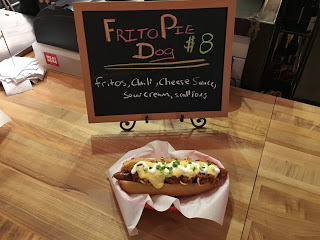 Frito Pie
Dog $8
Fritos, Chili, Cheese Sauce,
Sour cream, scallions